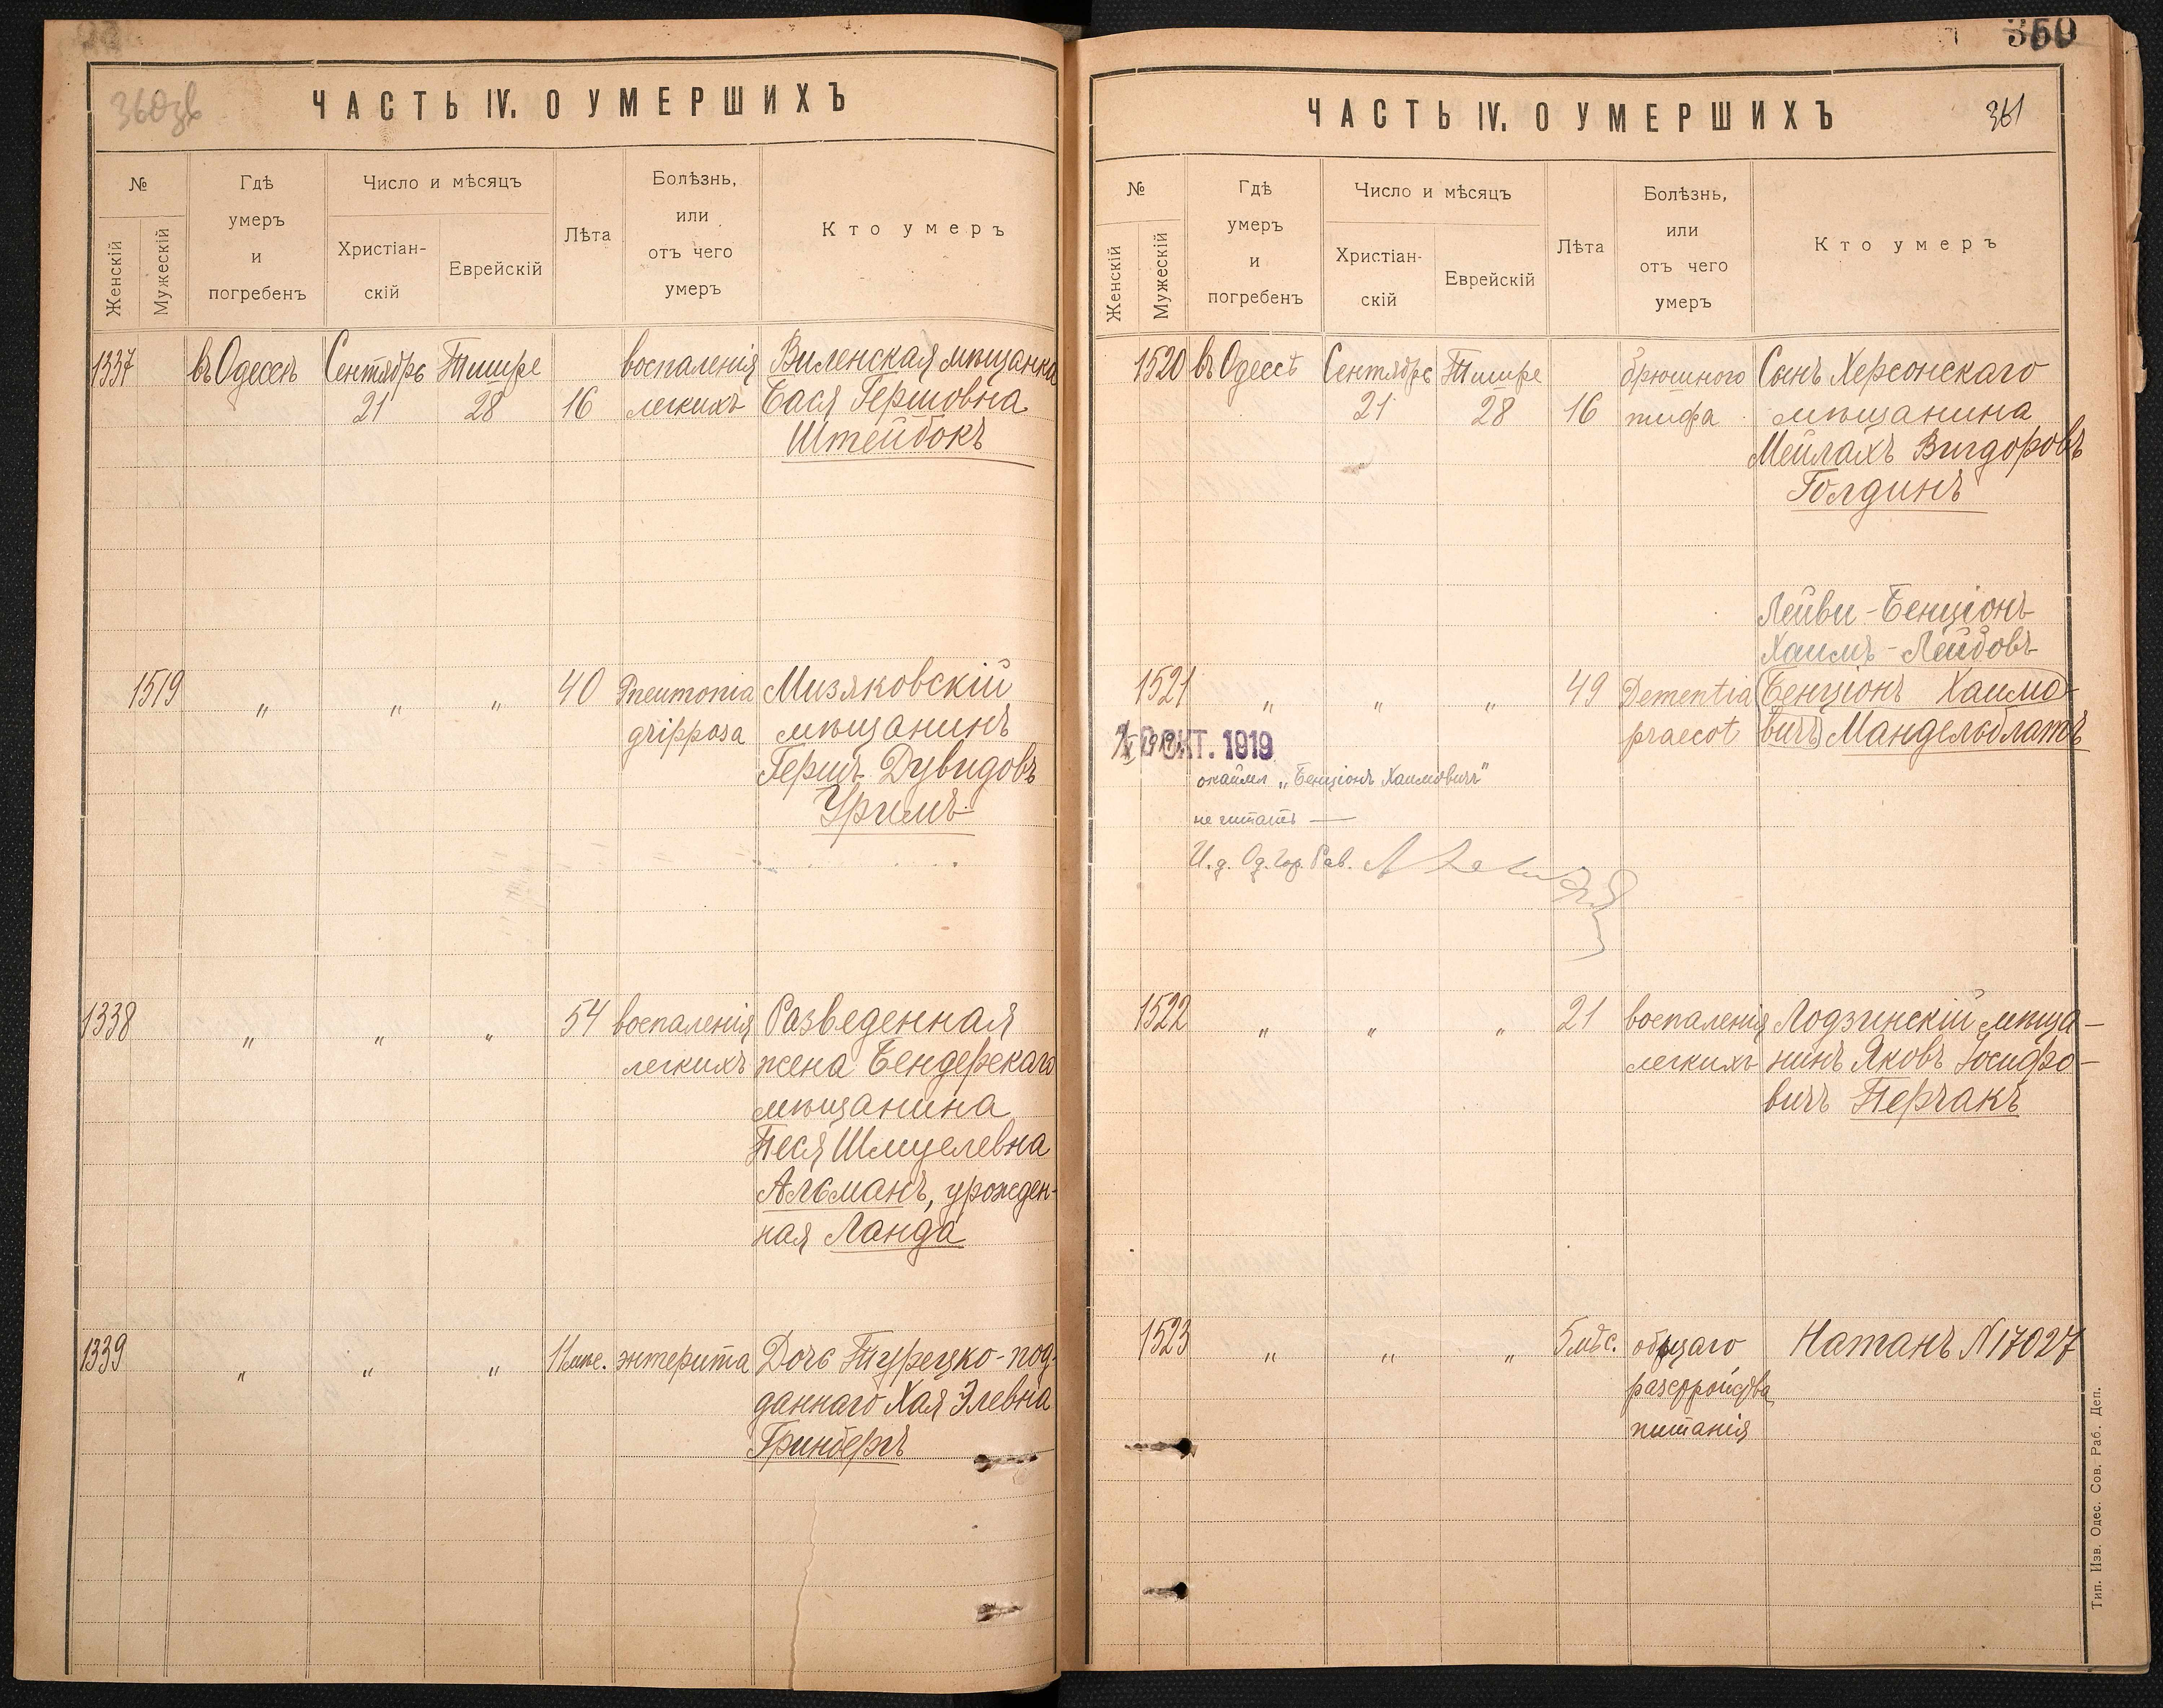 360зв
ЧАСТЬ IV. О УМЕРШИХЪ
№
Женскій
Мужескій
Гдѣ
умеръ
и
погребенъ
Число и мѣсяцъ
Христіан-
скій
Еврейскій
Лѣта
Болѣзнь,
или
отъ чего
умеръ
Кто умеръ
1337 въ Одессѣ Сентябрь Тишре воспаленія Виленская мѣщанка
21 28 16 легкихъ Бася Гершовна
Штейбокъ
1519 „ „ „ 40 Pneumonia Мизяковскій
gripposa мѣщанинъ
Гершъ Дувидовъ
Уримъ
1338 „ „ „ 54 воспаленія Разведенная
легкихъ жена Бендерскаго
мѣщанина
Песя Шмулевна
Альманъ, урожден-
ная Ланда
1339 „ „ „ 11 мѣс. энтерита Дочь Турецко-под-
даннаго Хая Элевна
Гринбергъ
360
ЧАСТЬ IV. О УМЕРШИХЪ
361
№
Женскій
Мужескій
Гдѣ
умеръ
и
погребенъ
Число и мѣсяцъ
Христіан-
скій
Еврейскій
Лѣта
Болѣзнь,
или
отъ чего
умеръ
Кто умеръ
1520 въ Одессѣ Сентябрь Тишре брюшного Сынъ Херсонскаго
21 28 16 тифа мѣщанина
Мейлахъ Вигдоровъ
Голдинъ
Лейви-Бенціонъ
Хаимъ-Лейбовъ
1521 „ „ „ 49 Dementia Бенціонъ Хаимо-
praecot вичъ Мандельблатъ
ОКТ. 1919
окайми „Бенціонъ Хаимовичъ"
не читать —
И. д. Од. Гор. Рав.
1522 „ „ „ 21 воспаленія Лодзинскій мѣща-
легкихъ нинъ Яковъ Іосифо-
вичъ Перчакъ
1523 „ „ „ 5 мѣс. общаго Натанъ N 17027
разстройства
питанія
Тип. Изв. Одес. Сов. Раб. Деп.